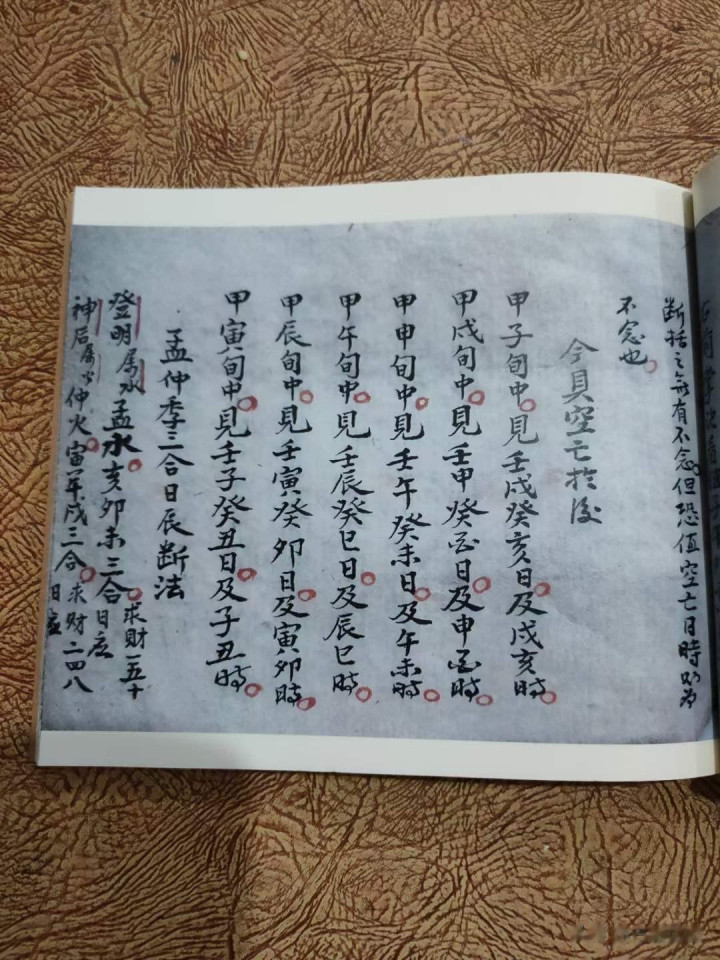 断括之無有不念但恐值空亡日時以為
不念也
今具空亡於後
甲子旬中見壬戌癸亥日及戌亥時
甲戌旬中見壬申癸酉日及申酉時
甲申旬中見壬午癸未日及午未時
甲午旬中見壬辰癸巳日及辰巳時
甲辰旬中見壬寅癸卯日及寅卯時
甲寅旬中見壬子癸丑日及子丑時
孟仲季三合日辰断法
登明属水孟水亥卯未三合日应求財一五十
神后属水仲火寅午戌三合日应求財二四八